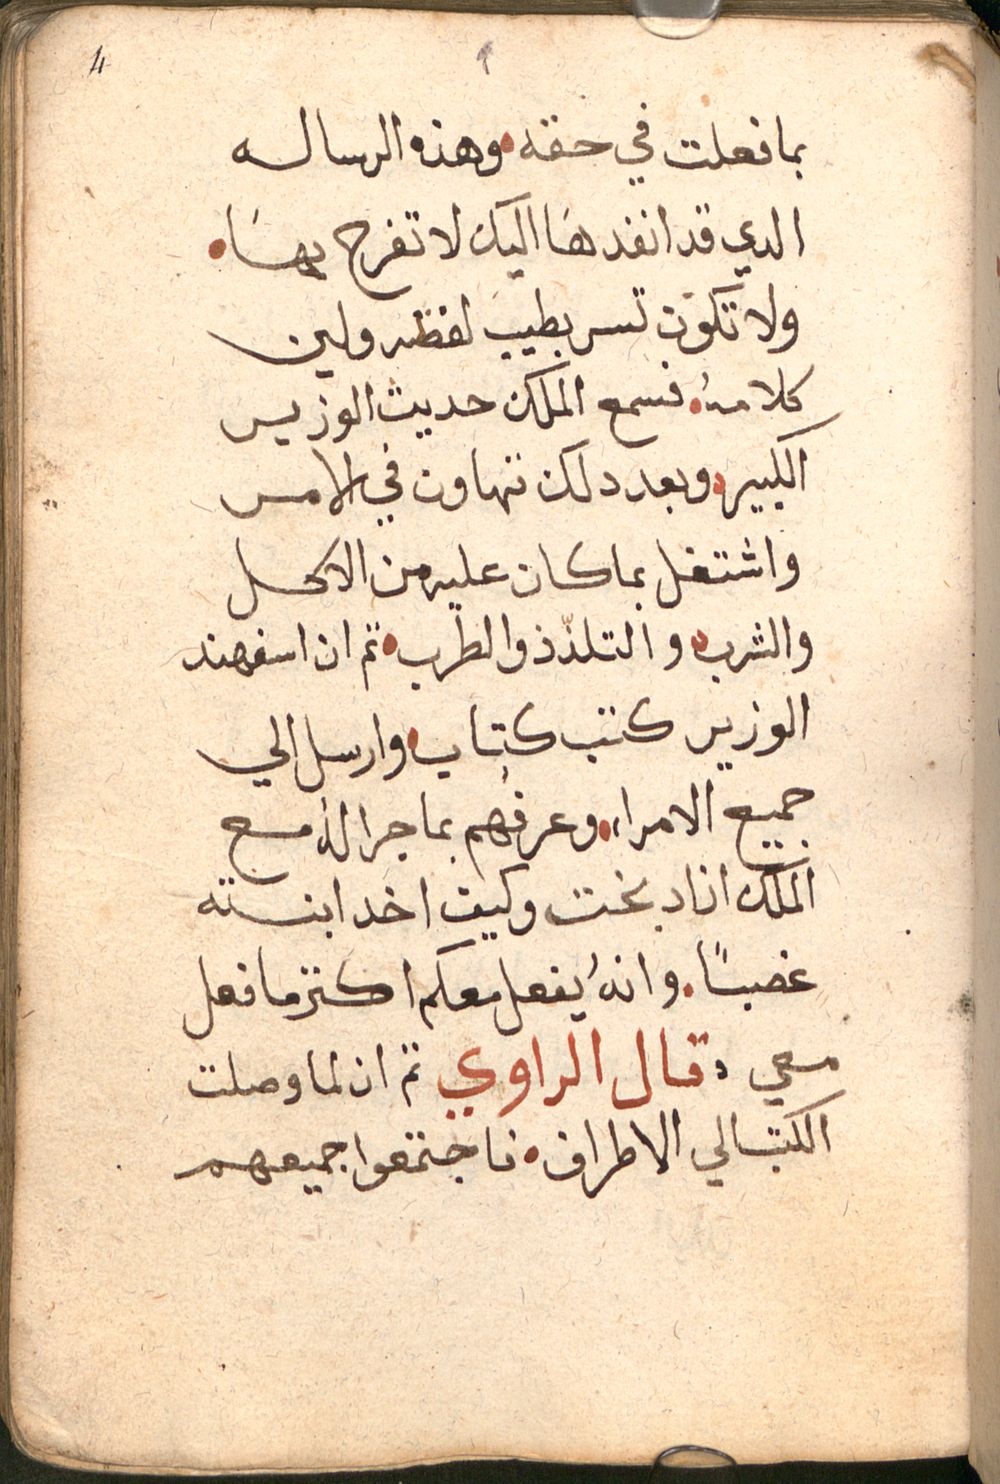 4
بما فعلت في حقه • وهذه الرساله
الدي قد انفدها اليك لا تفرح بها •
ولا تكون تسر بطيب لفظه ولين
كلامهُ • فسمع الملك حديث الوزير
الكبير • وبعد دلك تهاون في الامر
واشتغل بما كان عليه من الاكل
والشرب • والتلدّذ والطرب • تم ان اسفهند
الوزير كتب كتاب • وارسل الي
جميع الامراء • وعرفهم بما جرا لهُ مع
الملك ازاد بخت وكيف اخد ابنته
غصبًا • وانهُ يفعل معكم اكتر ما فعل
معي • قال الراوي تم ان لما وصلت
الكتب الي الاطراف • فاجتمعوا جميعهم